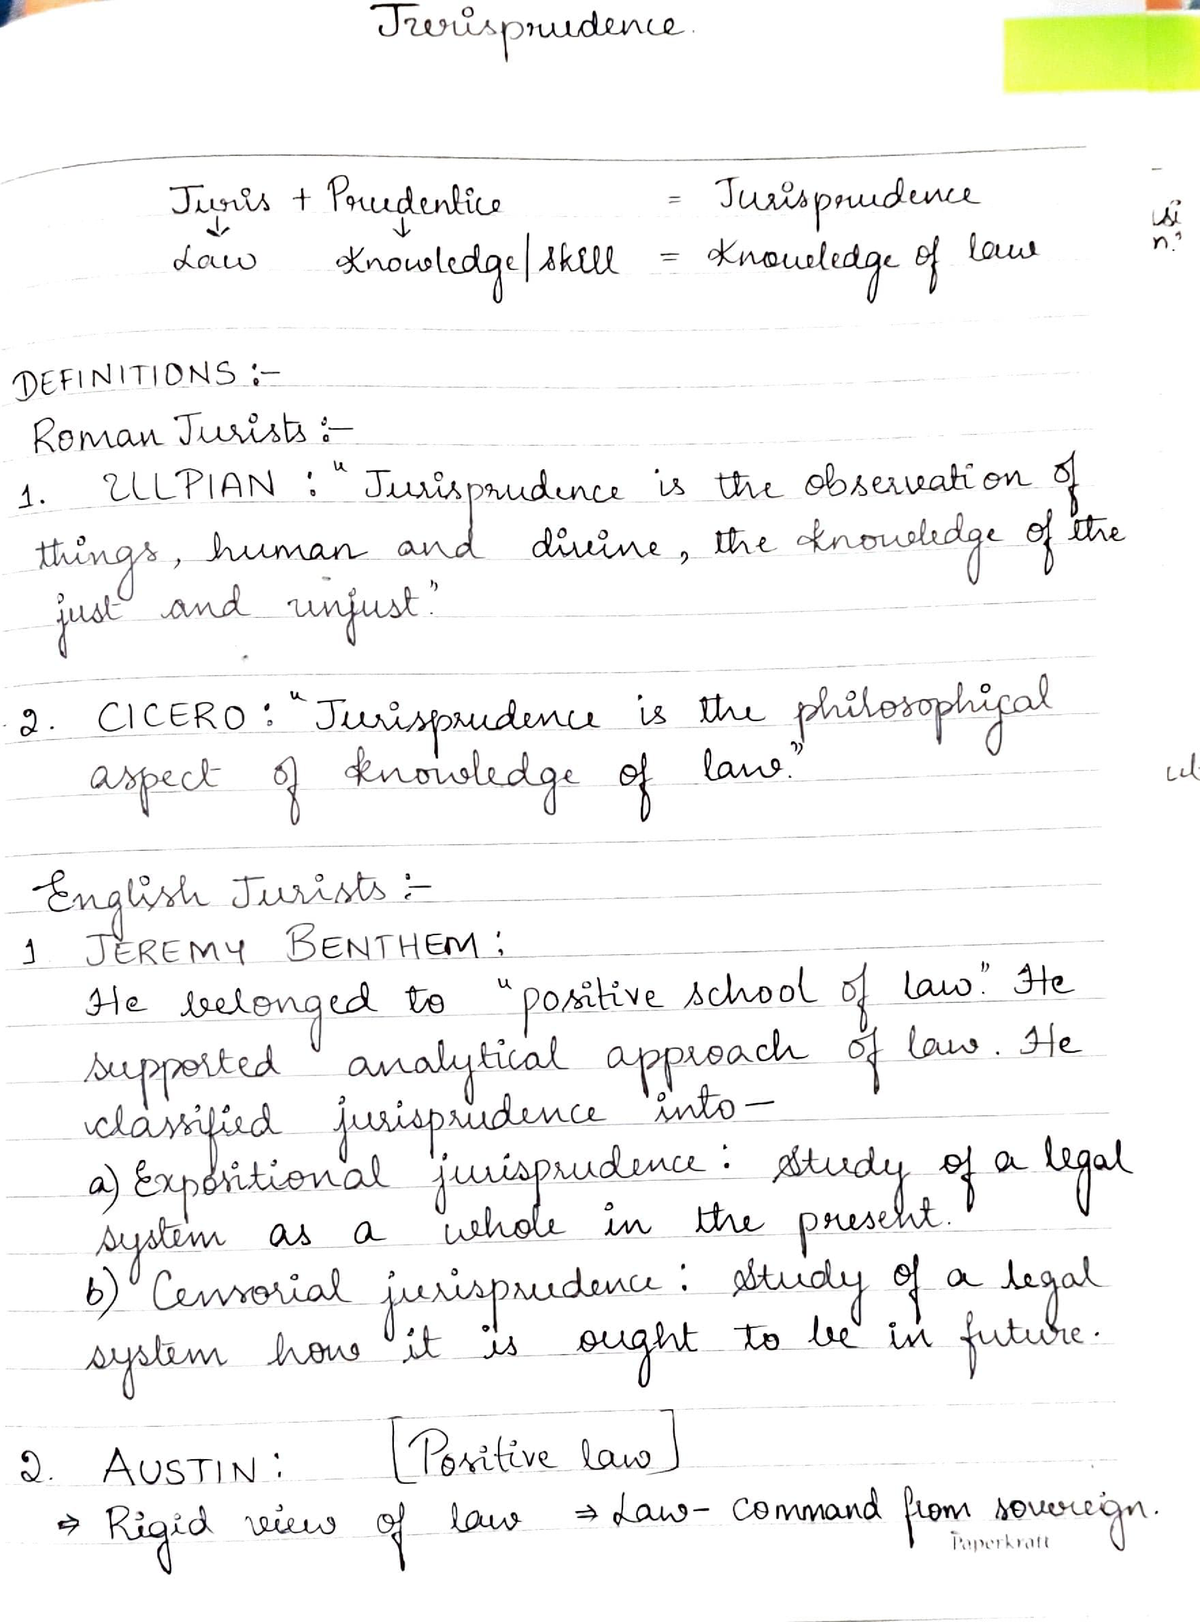 Jurisprudence.
Juris + Prudentice = Jurisprudence
↓ ↓
Law Knowledge/skill = Knowledge of law
DEFINITIONS :-
Roman Jurists :-
1. ULPIAN : "Jurisprudence is the observation of
things, human and divine, the knowledge of the
just and unjust."
2. CICERO : "Jurisprudence is the philosophical
aspect of knowledge of law."
English Jurists :-
1 JEREMY BENTHEM :
He belonged to "positive school of law." He
supported analytical approach of law. He
classified jurisprudence into -
a) Expositional jurisprudence : study of a legal
system as a whole in the present.
b) Censorial jurisprudence : study of a legal
system how it is ought to be in future.
2. AUSTIN : [Positive law]
⇒ Rigid view of law ⇒ Law - command from sovereign.
Paperkraft